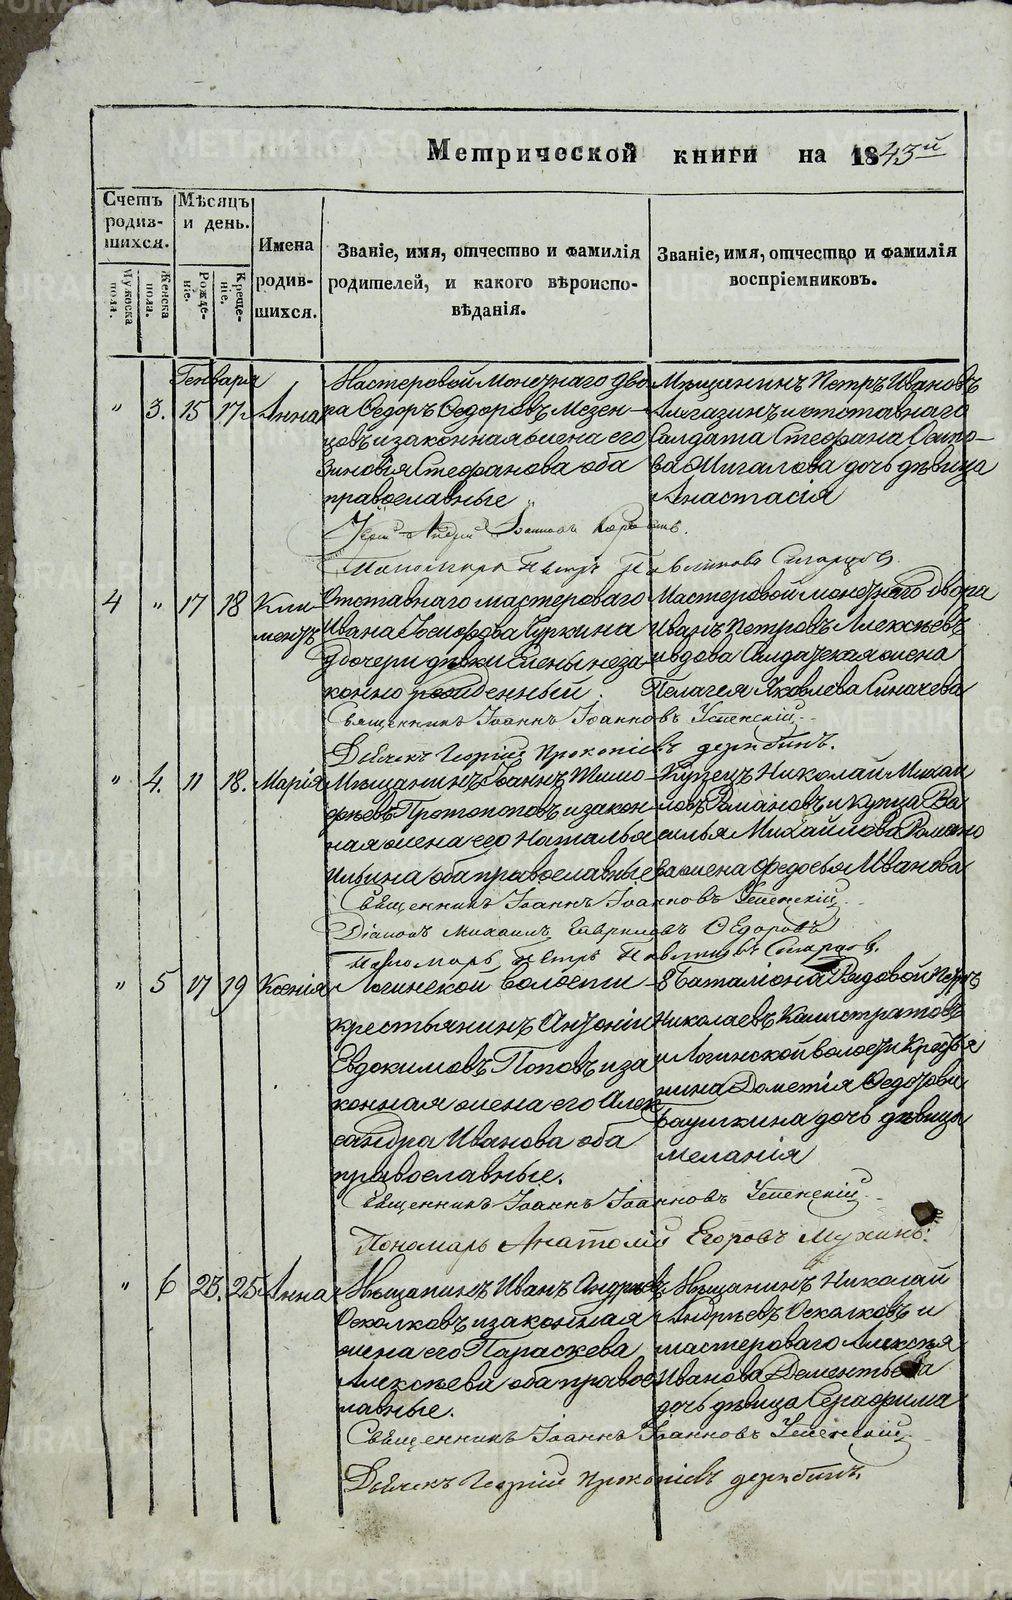 Метрической книги на 1843й
Счетъ родившихся.
Мѣсяцъ и день.
Имена родившихся.
Званіе, имя, отчество и фамилія родителей, и какого вѣроисповѣданія.
Званіе, имя, отчество и фамилія воспріемниковъ.
Мужеска пола.
Женска пола.
Рожденіе.
Крещеніе.
Генваря
" 3. 15 17. Анна
Мастеровой монетнаго дво
ра Ѳедоръ Ѳедоровъ Мезен-
цовъ и законная жена его
Зиновія Стефанова оба
православные
Мѣщанинъ Петръ Ивановъ
и отставнаго
Салдата Стефана Осипо-
ва дочь дѣвица
Анастасія
Іоанновъ
Пономарь Петръ Павлиновъ
4 " 17 18 Кли-
ментъ
Отставнаго мастероваго
Ивана Чуркина
дочери дѣвки Елены неза
конно рожденный.
Мастеровой монетнаго двора
Иванъ Петровъ Алексѣевъ
и вдова Салдатская жена
Пелагея Яковлева Синачева
Священникъ Іоаннъ Іоанновъ Успенскій.
Дьячекъ Георгій Прокопіевъ дерябинъ.
" 4. 11 18. Марія
Мѣщанинъ Іоаннъ Тимо
фѣевъ Протопоповъ и закон
ная жена его Наталья
Ильина оба православные
Купецъ Николай Михаи
ловъ Романовъ и купца Ва
силья Михайлова Романо
ва жена Ѳедосья Иванова
Священникъ Іоаннъ Іоанновъ Успенскій.
Діаконъ Михаилъ Гавриловъ Ѳедоровъ
Пономарь Петръ Павлиновъ
" 5 17 19 Ксенія
Логиновской волости
крестьянинъ Антоній
Евдокимовъ Поповъ и за
конная жена его Алек
сандра Иванова оба
православные.
8 Баталіона Рядовой Петръ
Николаевъ Калистратовъ
и волости Крестья
нина Дометія Ѳедотова
Баушкина дочь дѣвица
Меланія
Священникъ Іоаннъ Іоанновъ Успенскій.
Пономарь Анатолій Егоровъ Мухинъ.
" 6 23. 25 Анна
Мѣщанинъ Иванъ Андреевъ
Осколковъ и законная
жена его Параскева
Алексѣева оба правос
лавные.
Мѣщанинъ Николай
Андрѣевъ Осколковъ и
мастероваго Алексѣя
Иванова Дементьева
дочь дѣвица Серафима
Священникъ Іоаннъ Іоанновъ Успенскій.
Дьячекъ Георгій Прокопіевъ дерябинъ.
METRIKI.GASO-URAL.RU